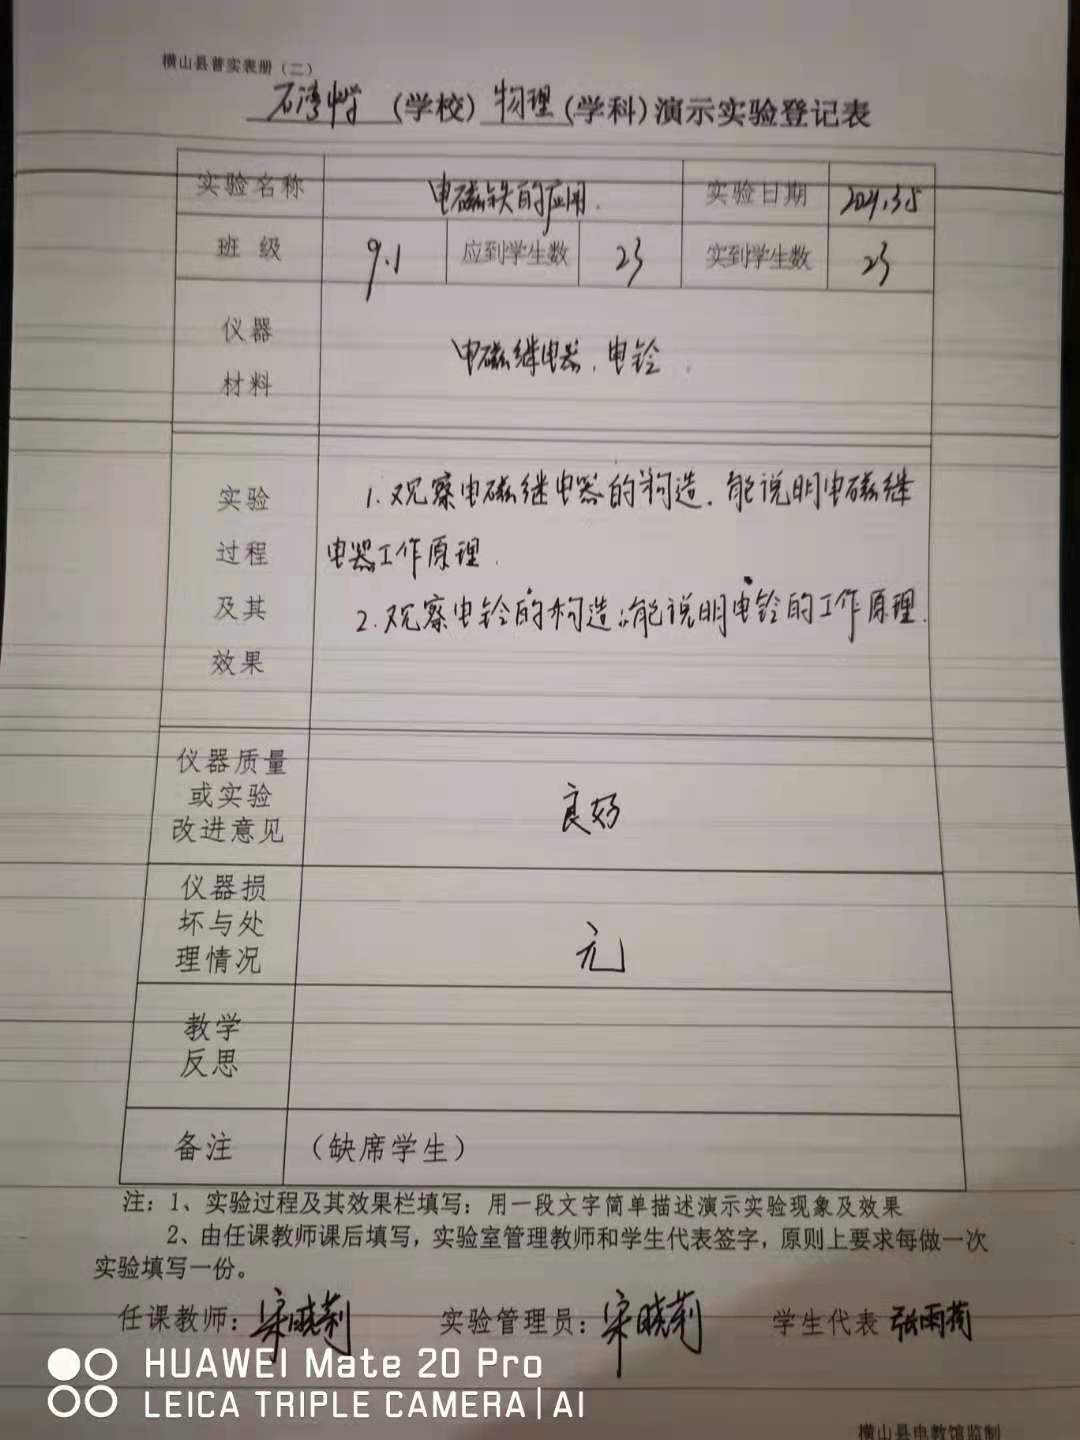 横山县普实表册（二）
石湾中学（学校）物理（学科）演示实验登记表
实验名称 电磁铁的应用. 实验日期 2021.3.5
班级 9.1 应到学生数 23 实到学生数 23
仪器
材料
电磁继电器、电铃.
实验
过程
及其
效果
1.观察电磁继电器的构造.能说明电磁继
电器工作原理.
2.观察电铃的构造;能说明电铃的工作原理.
仪器质量
或实验
改进意见
良好
仪器损
坏与处
理情况
无
教学
反思
备注 （缺席学生）
注：1、实验过程及其效果栏填写：用一段文字简单描述演示实验现象及效果
2、由任课教师课后填写，实验室管理教师和学生代表签字，原则上要求每做一次
实验填写一份。
任课教师：宋晓莉 实验管理员：宋晓莉 学生代表 张雨荷
HUAWEI Mate 20 Pro
LEICA TRIPLE CAMERA | AI
横山县电教馆监制